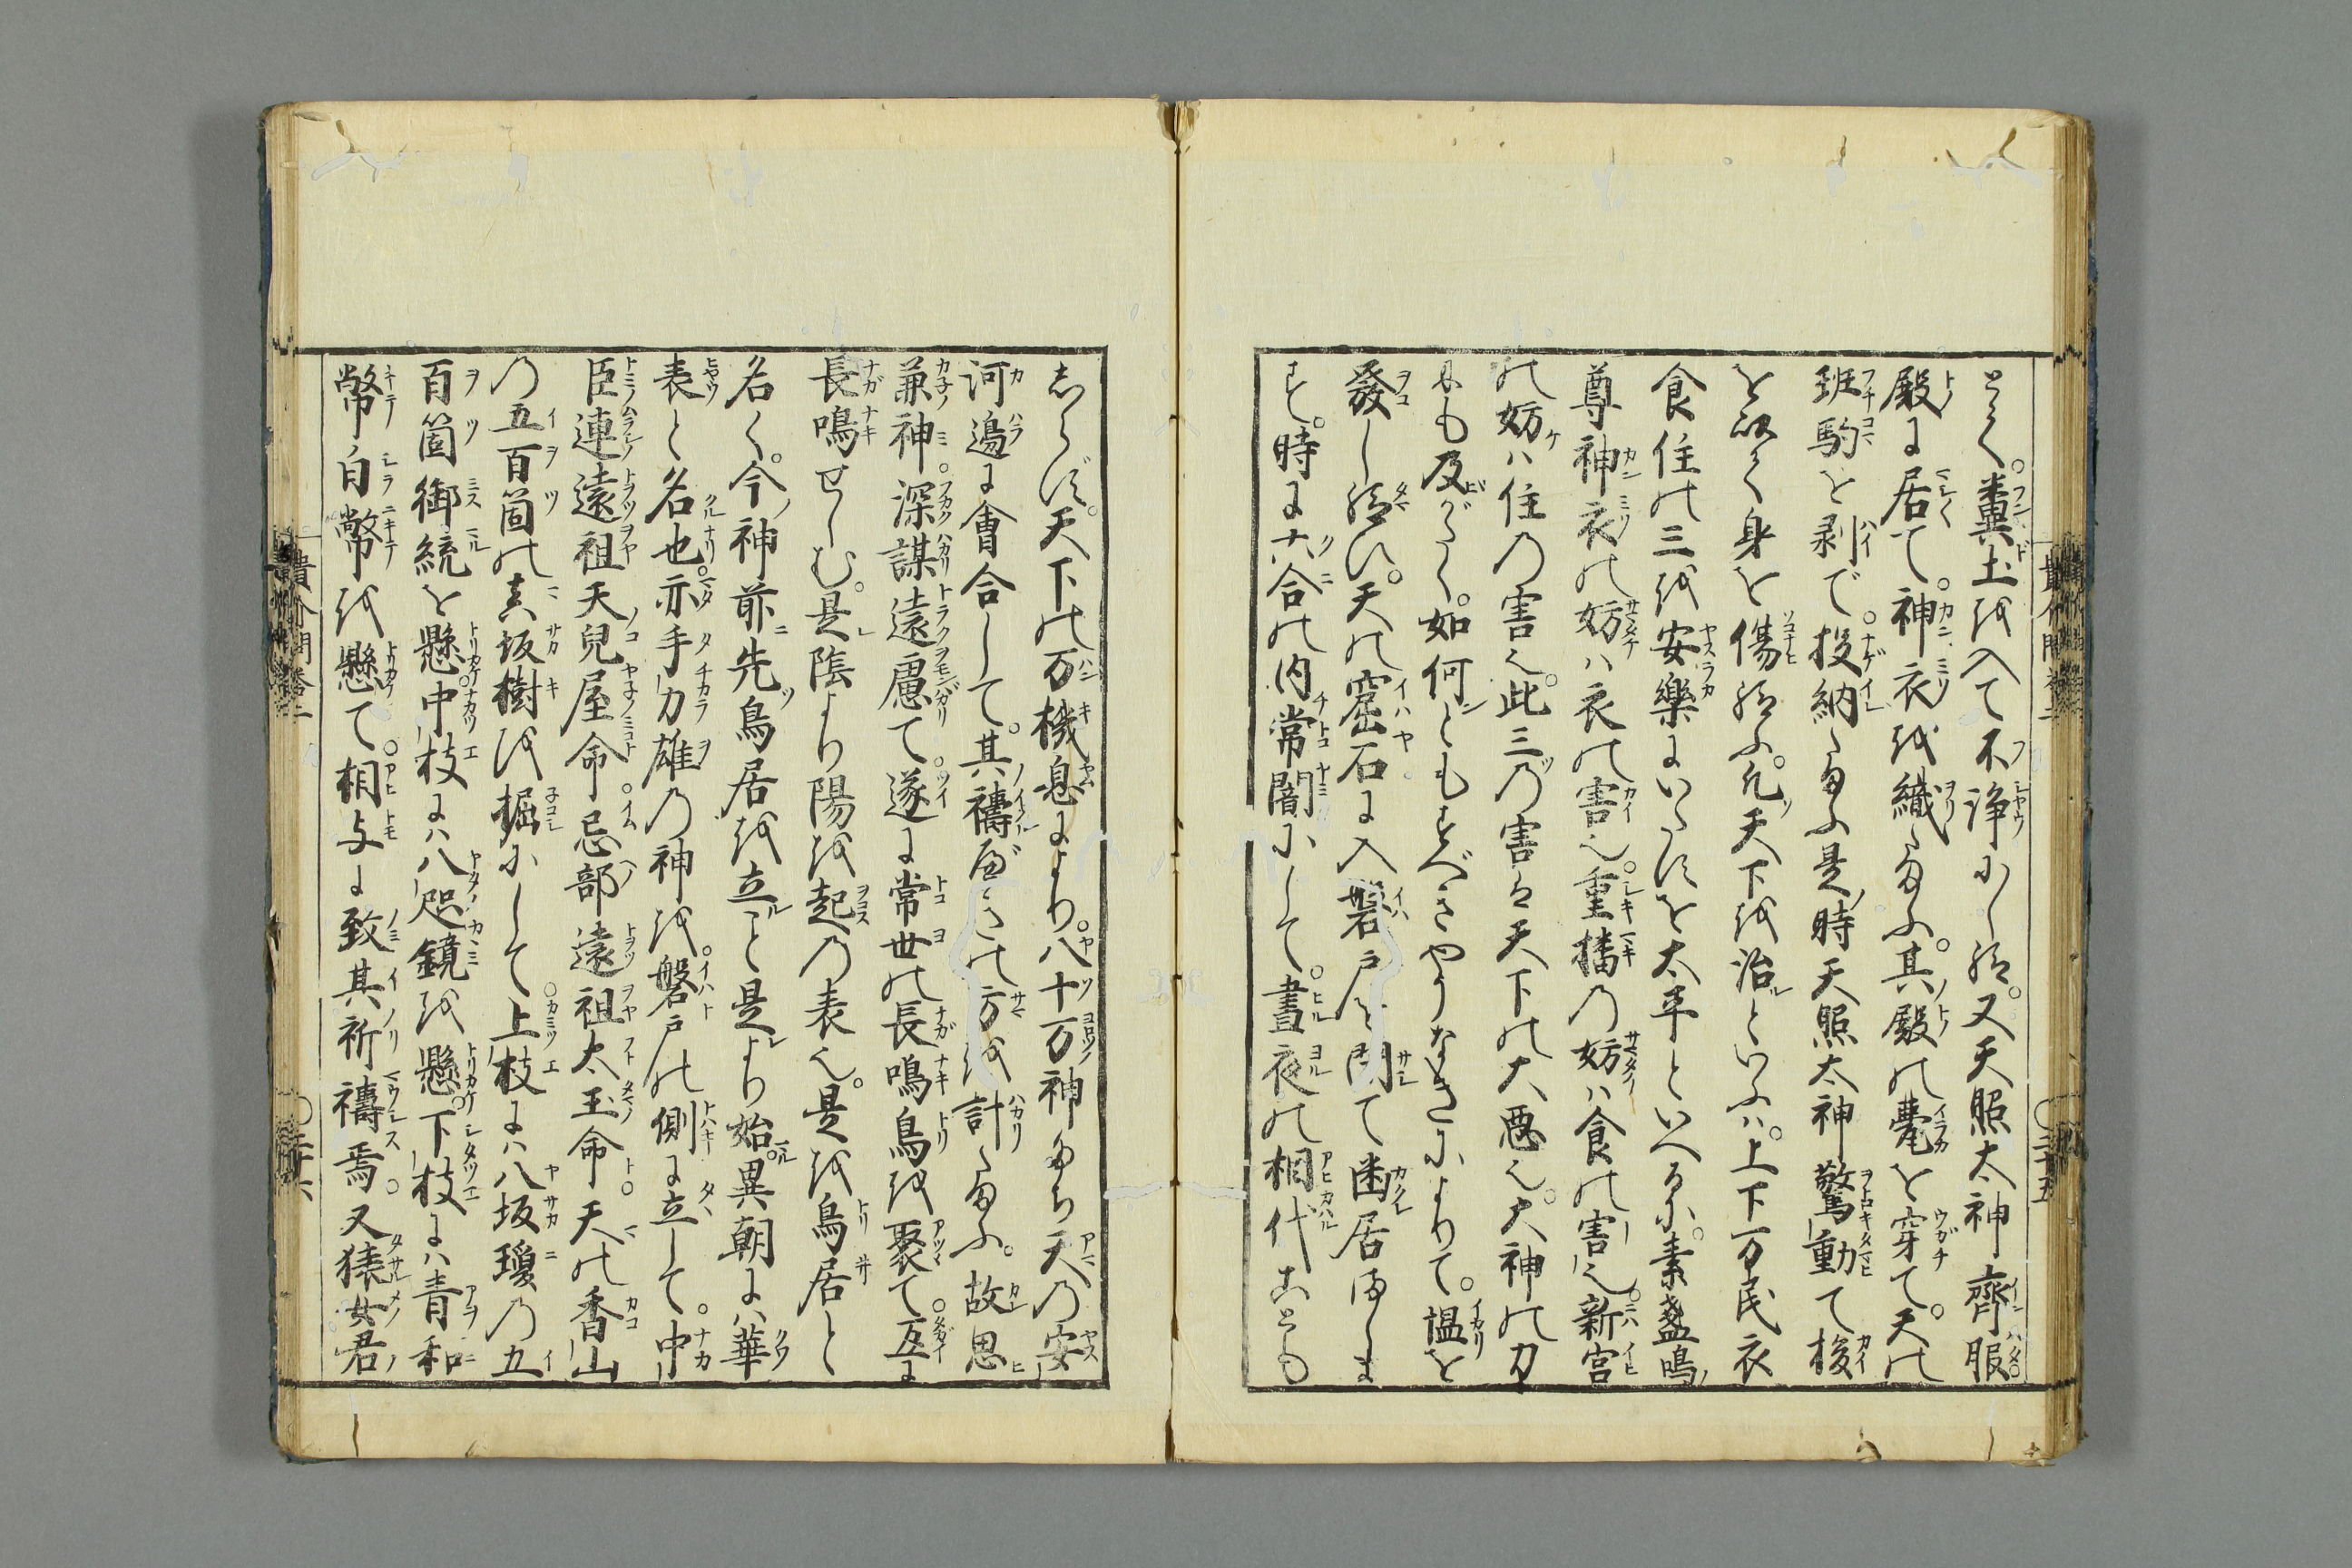 とく。糞土を入て不浄にし給。又天照太神齊服
殿に居て。神衣を織たまふ。其殿の甍を穿て。天の
班駒を剥で。投納たまふ是時天照太神驚動て梭
を以て身を傷給ふ。凡天下を治といふハ。上下万民衣
食住の三を安樂にいたすを太平といへるに。素盞鳴
尊神衣の妨ハ衣の害也。重播の妨ハ食の害也。新宮
の妨ハ住の害也。此三の害は天下の大悪也。大神の力
にも及がたく。如何ともすべきやうなきによりて。慍を
發し給ひ。天の窟石に入磐戸を閉て幽居ましま
す。時に六合の内常闇にして。晝夜の相代ことも
しらず。天下の万機息により。八十万神たち天の安
河邉に會合して。其禱べきの方を計たまふ。故思
兼神。深謀遠慮て。遂に常世の長鳴鳥を聚て。互に
長鳴せしむ。是陰より陽を起の表也。是を鳥居と
名く。今神前先鳥居を立ること是より始。異朝にハ華
表と名也。亦手力雄の神を。磐戸の側に立して。中
臣連遠祖天兒屋命。忌部遠祖太玉命。天の香山
の五百箇の真坂樹を掘にして。上枝にハ八坂瓊の五
百箇御統を懸。中枝にハ八咫鏡を懸。下枝にハ青和
幣白幣を懸て。相与に致其祈禱焉。又猿女君